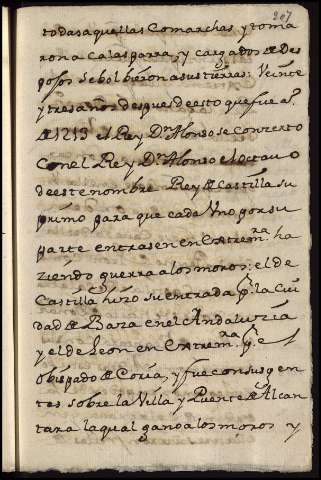 207
todas aquellas Comarchas, y toma
ron a Calasparra, y cargados de Des
pojos se bolbieron a sus tierras: Veinte
y tres años despues de esto que fue aº.
de 1213 el Rey Dn. Alonso se concerto
con el Rey Dn. Alonso el octauo
de este nombre Rey de Castilla su
primo para que cada Uno por su
parte entrasen en Extremra. ha
ziendo guerra a los moros: el de
Castilla hizo su entrada pr. la Ciu
dad de Baza en el Andaluzia
y el de Leon en Extremra. pr. el
obispado de Coria, y fue con sus gen
tes sobre la Villa y Puente de Alcan
tara la qual gano a los moros y